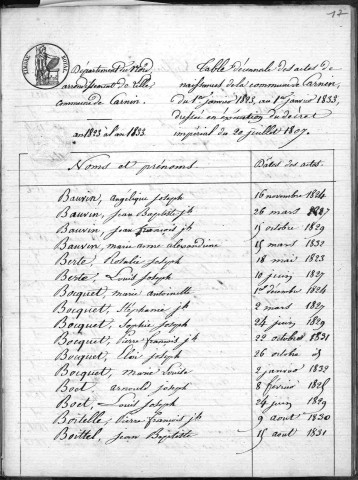 17
TIMBRE ROYAL
Département du Nord
arrondissement de Lille,
commune de Carnin.
an 1823 à l'an 1833.
Table décennale des actes de
naissances de la commune de Carnin,
du 1er janvier 1823, au 1er janvier 1833,
dressée en exécution du décret
impérial du 20 juillet 1807.
Noms et prénoms Dates des actes.
Bauvin, angélique joseph 16 novembre 1824
Bauvin, Jean Baptiste jh 26 mars 1827
Bauvin, jean françois jh 15 octobre 1829
Bauvin, marie anne alexandrine 15 mars 1832
Berte, Rosalie joseph 18 mai 1823
Berte, Louis joseph 10 juin 1827
Bocquet, marie antoinette 1er decembre 1824
Bocquet, Stéphanie jh 2 mars 1827
Bocquet, Sophie joseph 24 juin 1829
Bocquet, Pierre françois jh 22 octobre 1831
Bocquet, Eloi joseph 26 octobre
Bocquet, marie Louise 2 janvier 1832
Boet, arnould joseph 8 février 1825
Boet, Louis joseph 24 juin 1829
Boitelle, Pierre françois jh 9 aout 1830
Boittel, jean Baptiste 15 aout 1831